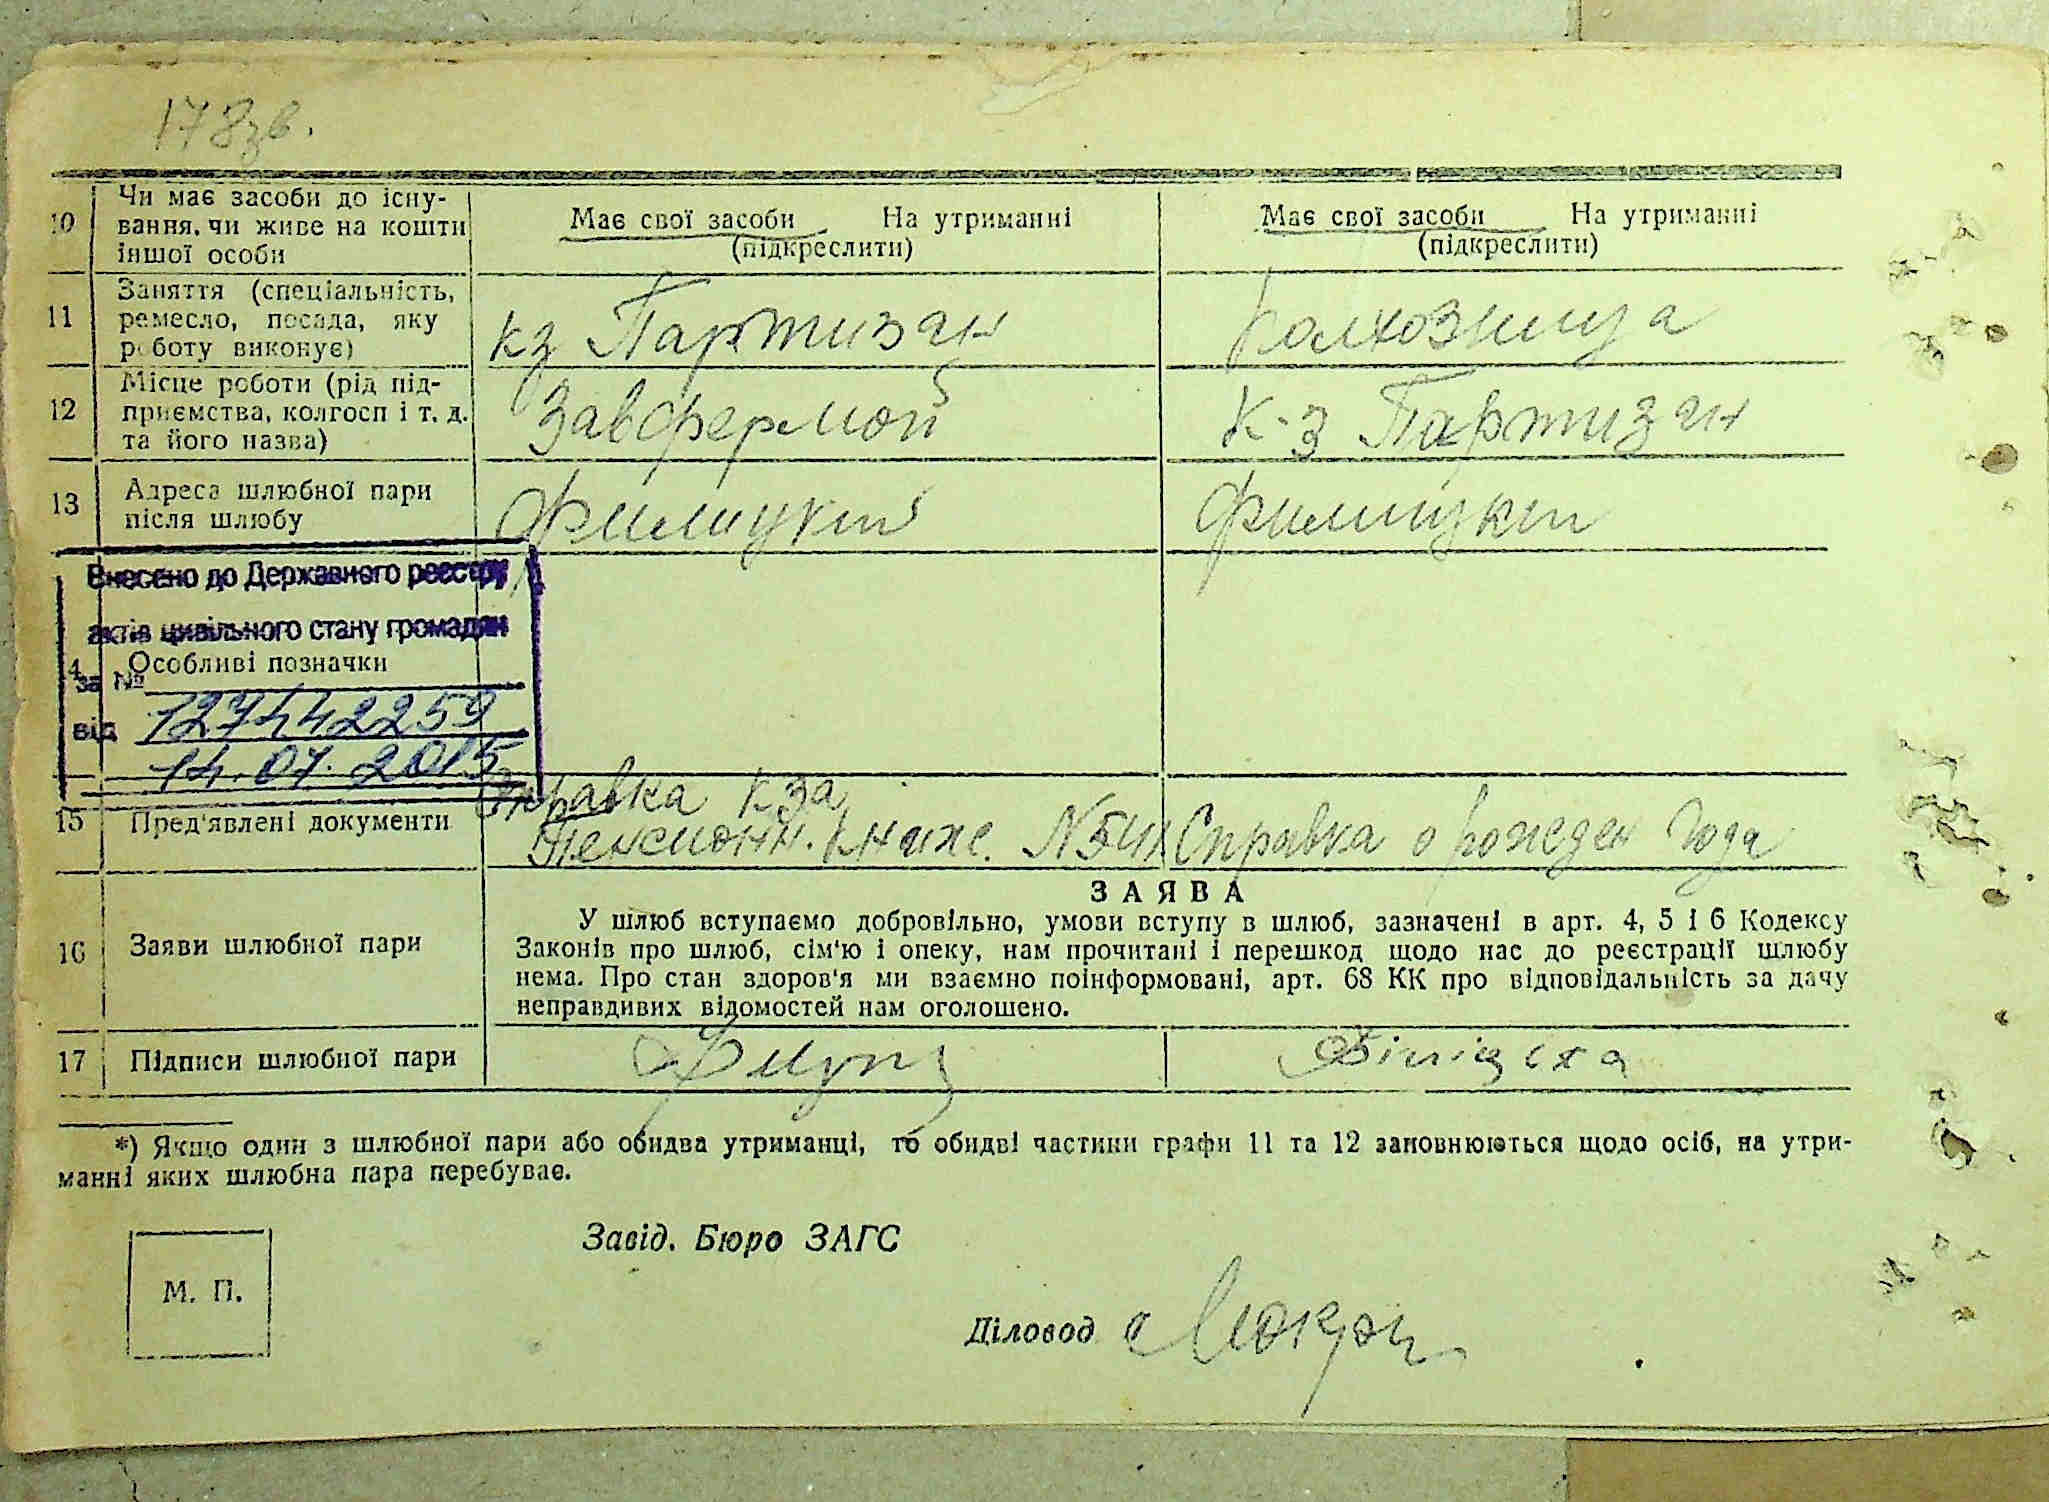 178зв.
10 Чи має засоби до існу-
вання, чи живе на кошти
іншої особи
Має свої засоби На утриманні
(підкреслити)
Має свої засоби На утриманні
(підкреслити)
11 Заняття (спеціальність,
ремесло, посада, яку
роботу виконує)
кз Партизан
колхозница
12 Місце роботи (рід під-
приємства, колгосп і т. д.
та його назва)
Завфермой
к-з Партизан
13 Адреса шлюбної пари
після шлюбу
Внесено до Державного реєстру
актів цивільного стану громадян
Особливі позначки
за №
127442259
від
14.07.2015
15 Пред'явлені документи
Справка кза
Пенсионн. книже. №541
Справка о рожден года
16 Заяви шлюбної пари
ЗАЯВА
У шлюб вступаємо добровільно, умови вступу в шлюб, зазначені в арт. 4, 5 і 6 Кодексу
Законів про шлюб, сім'ю і опеку, нам прочитані і перешкод щодо нас до реєстрації шлюбу
нема. Про стан здоров'я ми взаємно поінформовані, арт. 68 КК про відповідальність за дачу
неправдивих відомостей нам оголошено.
17 Підписи шлюбної пари
*) Якщо один з шлюбної пари або обидва утриманці, то обидві частини графи 11 та 12 заповнюються щодо осіб, на утри-
манні яких шлюбна пара перебуває.
Завід. Бюро ЗАГС
М. П.
Діловод